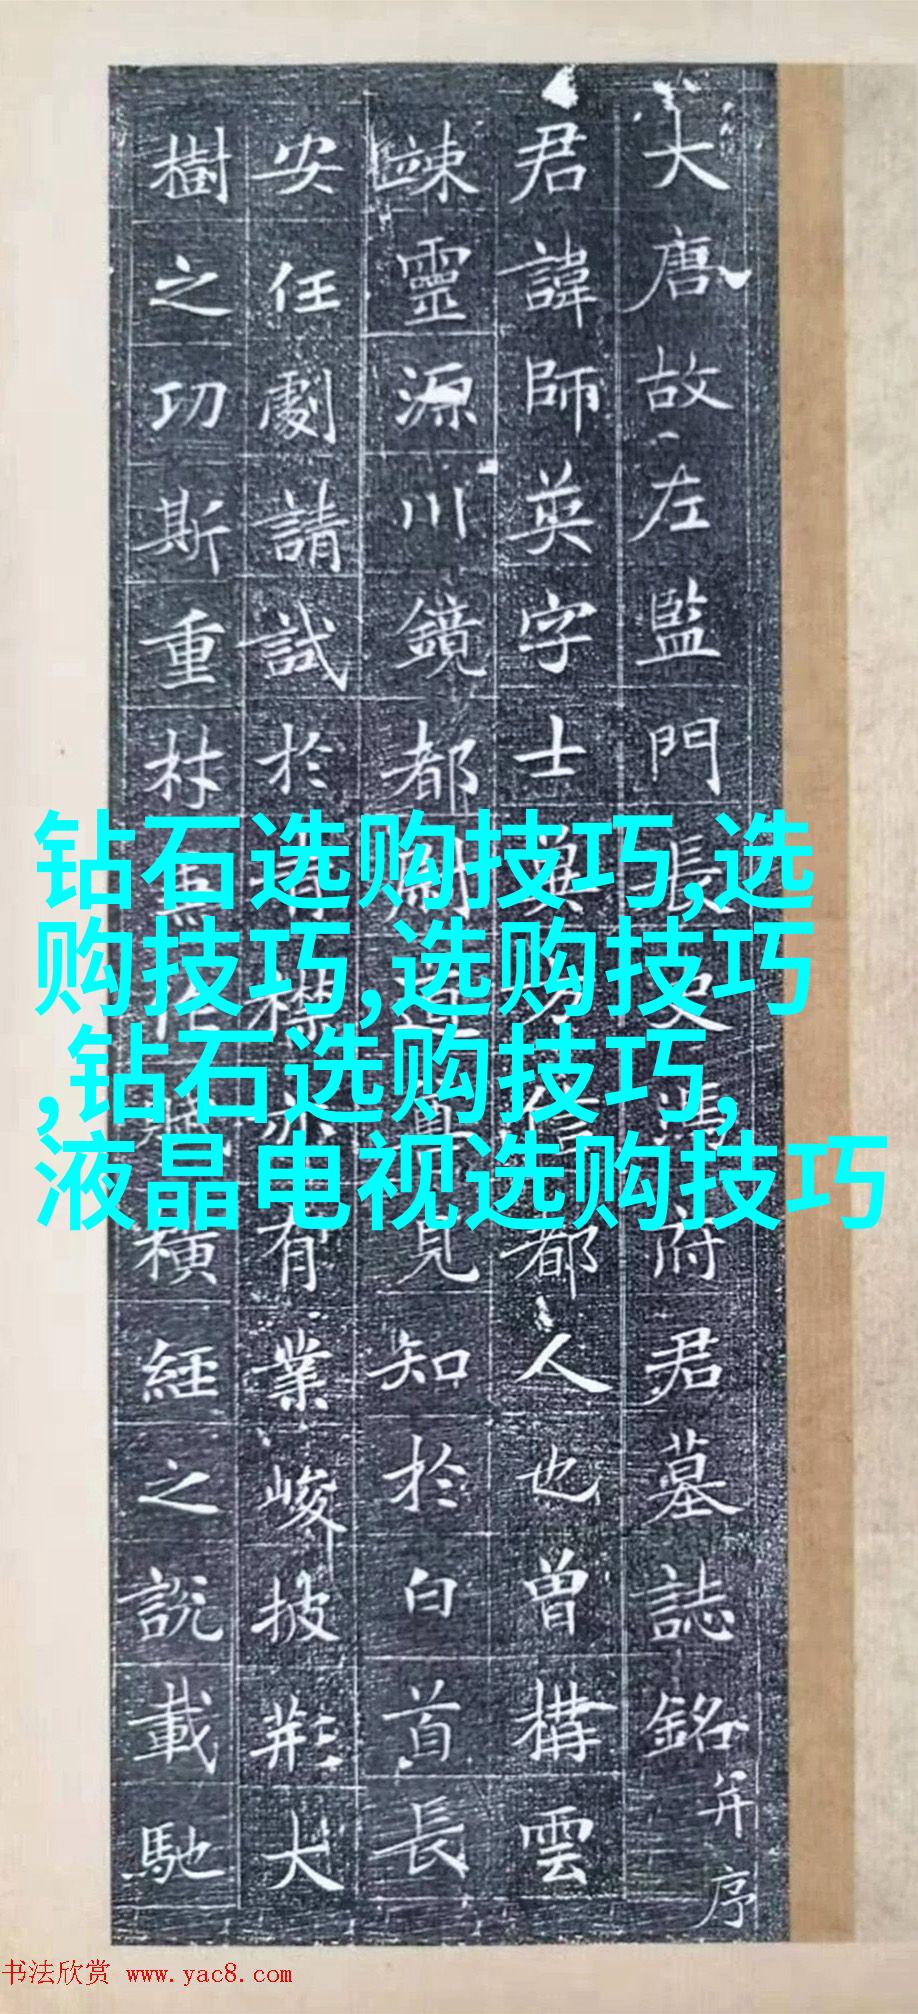 大唐故左監門長史馮府君墓誌銘并序
君諱師英字士信都人也曾構雲
竦靈源川鏡都見知於白首長
安任劇請試於有業峻披荊大
樹之功斯重林橫經之說載馳
钻石选购技巧,选
购技巧,选购技巧
,钻石选购技巧,
液晶电视选购技巧
书法欣赏 www.yac8.com